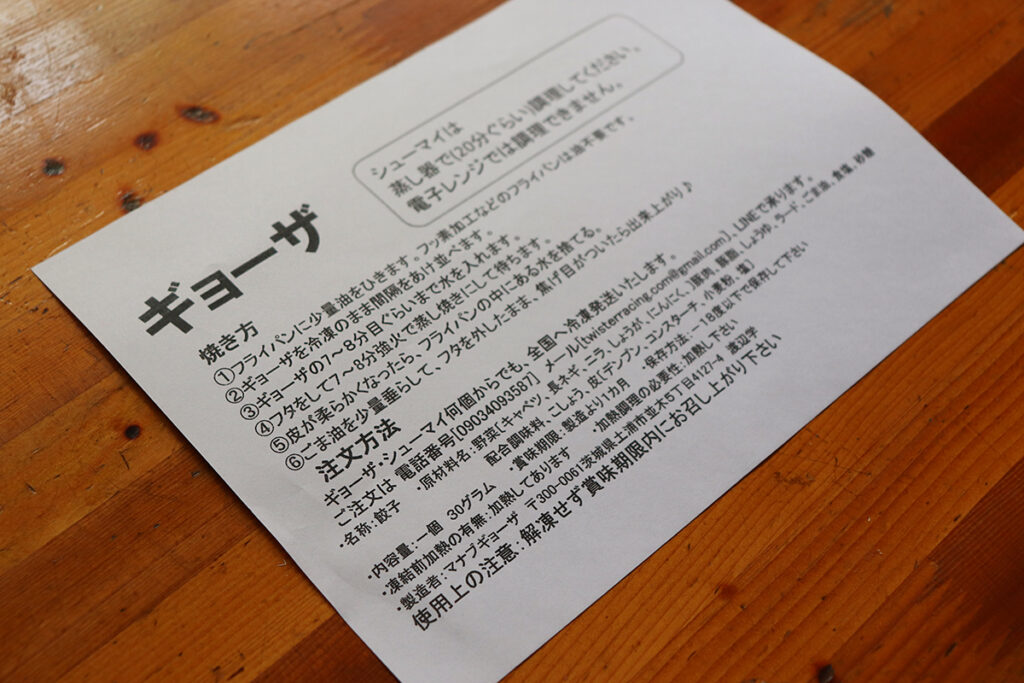 シューマイは
蒸し器で(20分ぐらい)調理してください。
電子レンジでは調理できません。
ギョーザ
焼き方
①フライパンに少量油をひきます。フッ素加工などのフライパンは油不要です。
②ギョーザを冷凍のまま間隔をあけ並べます。
③ギョーザの7〜8分目ぐらいまで水を入れます。
④フタをして7〜8分強火で蒸し焼きにして待ちます。
⑤皮が柔らかくなったら、フライパンの中にある水を捨てる。
⑥ごま油を少量垂らして、フタを外したまま、焦げ目がついたら出来上がり♪
注文方法
ギョーザ・シューマイ何個からでも、全国へ冷凍発送いたします。
ご注文は 電話番号[09034093587] メール[twisterracing.com@gmail.com]、LINEで承ります。
・名称:餃子 ・原材料名:野菜[キャベツ・長ネギ、ニラ、しょうが、にんにく、]豚肉、豚脂、しょうゆ、ラード、ごま油、食塩、砂糖
配合調味料、こしょう、皮[デンプン、コンスターチ、小麦粉、塩]
・内容量:一個 30グラム ・賞味期限:製造より1カ月 ・保存方法:−18度以下で保存して下さい
・凍結前加熱の有無:加熱してあります ・加熱調理の必要性:加熱し下さい
・製造者:マナブギョーザ 〒300-0061茨城県土浦市並木5丁目4127-4 渡辺学
使用上の注意:解凍せず賞味期限内にお召し上がり下さい